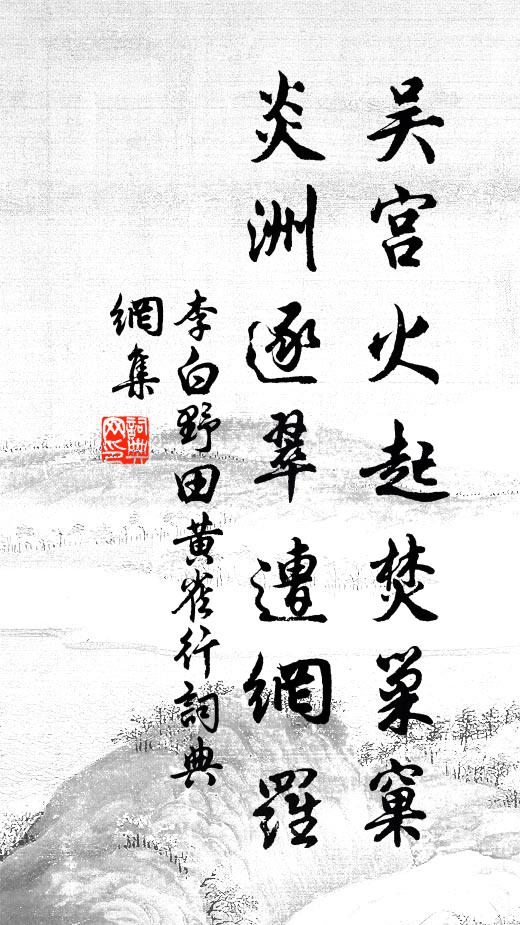 吴宫火起焚巢窠
炎洲逐翠遭網羅
李白野田黄雀行詞典
網集
詞典
网印